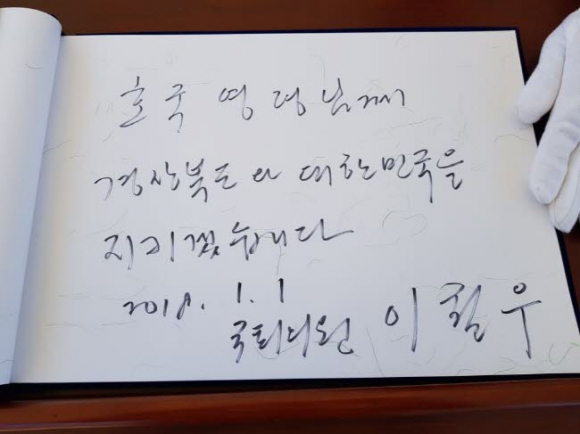 호국 영령님께
경상북도와 대한민국을
지키겠습니다
2018. 1. 1
국회의원 이철우